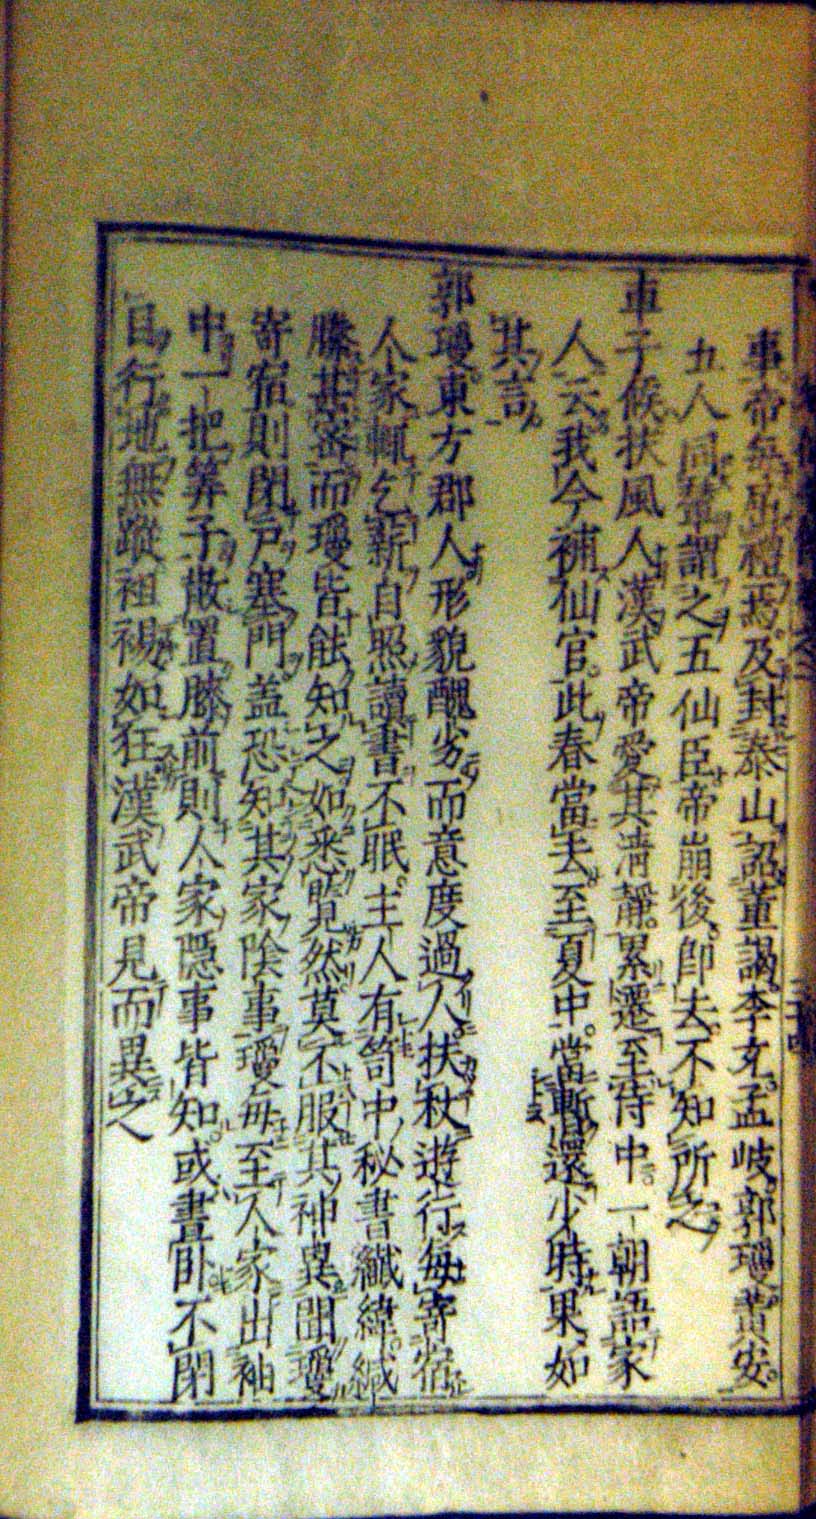 事帝每屈禮焉及封泰山詔董謁李充孟岐郭瓊黃安
五人同輦謂之五仙臣帝崩後卽去不知所之
車子候扶風人漢武帝愛其淸靜累遷至侍中一朝語家
人云我今補仙官此春當去至夏中當暫還少時果如
其言
郭瓊東方郡人形貌醜劣而意度過人扶杖遊行每寄宿
人家輒乞薪自照讀書不眠主人有笥中秘書纖緯緘
縢甚密而瓊皆能知之如悉覽然莫不服其神異聞瓊
寄宿則閉戶塞門盖恐知其家陰事瓊每至人家出袖
中一把筭子散置膝前則人家隱事皆知或晝臥不閉
目行地無蹤祖裼如狂漢武帝見而異之